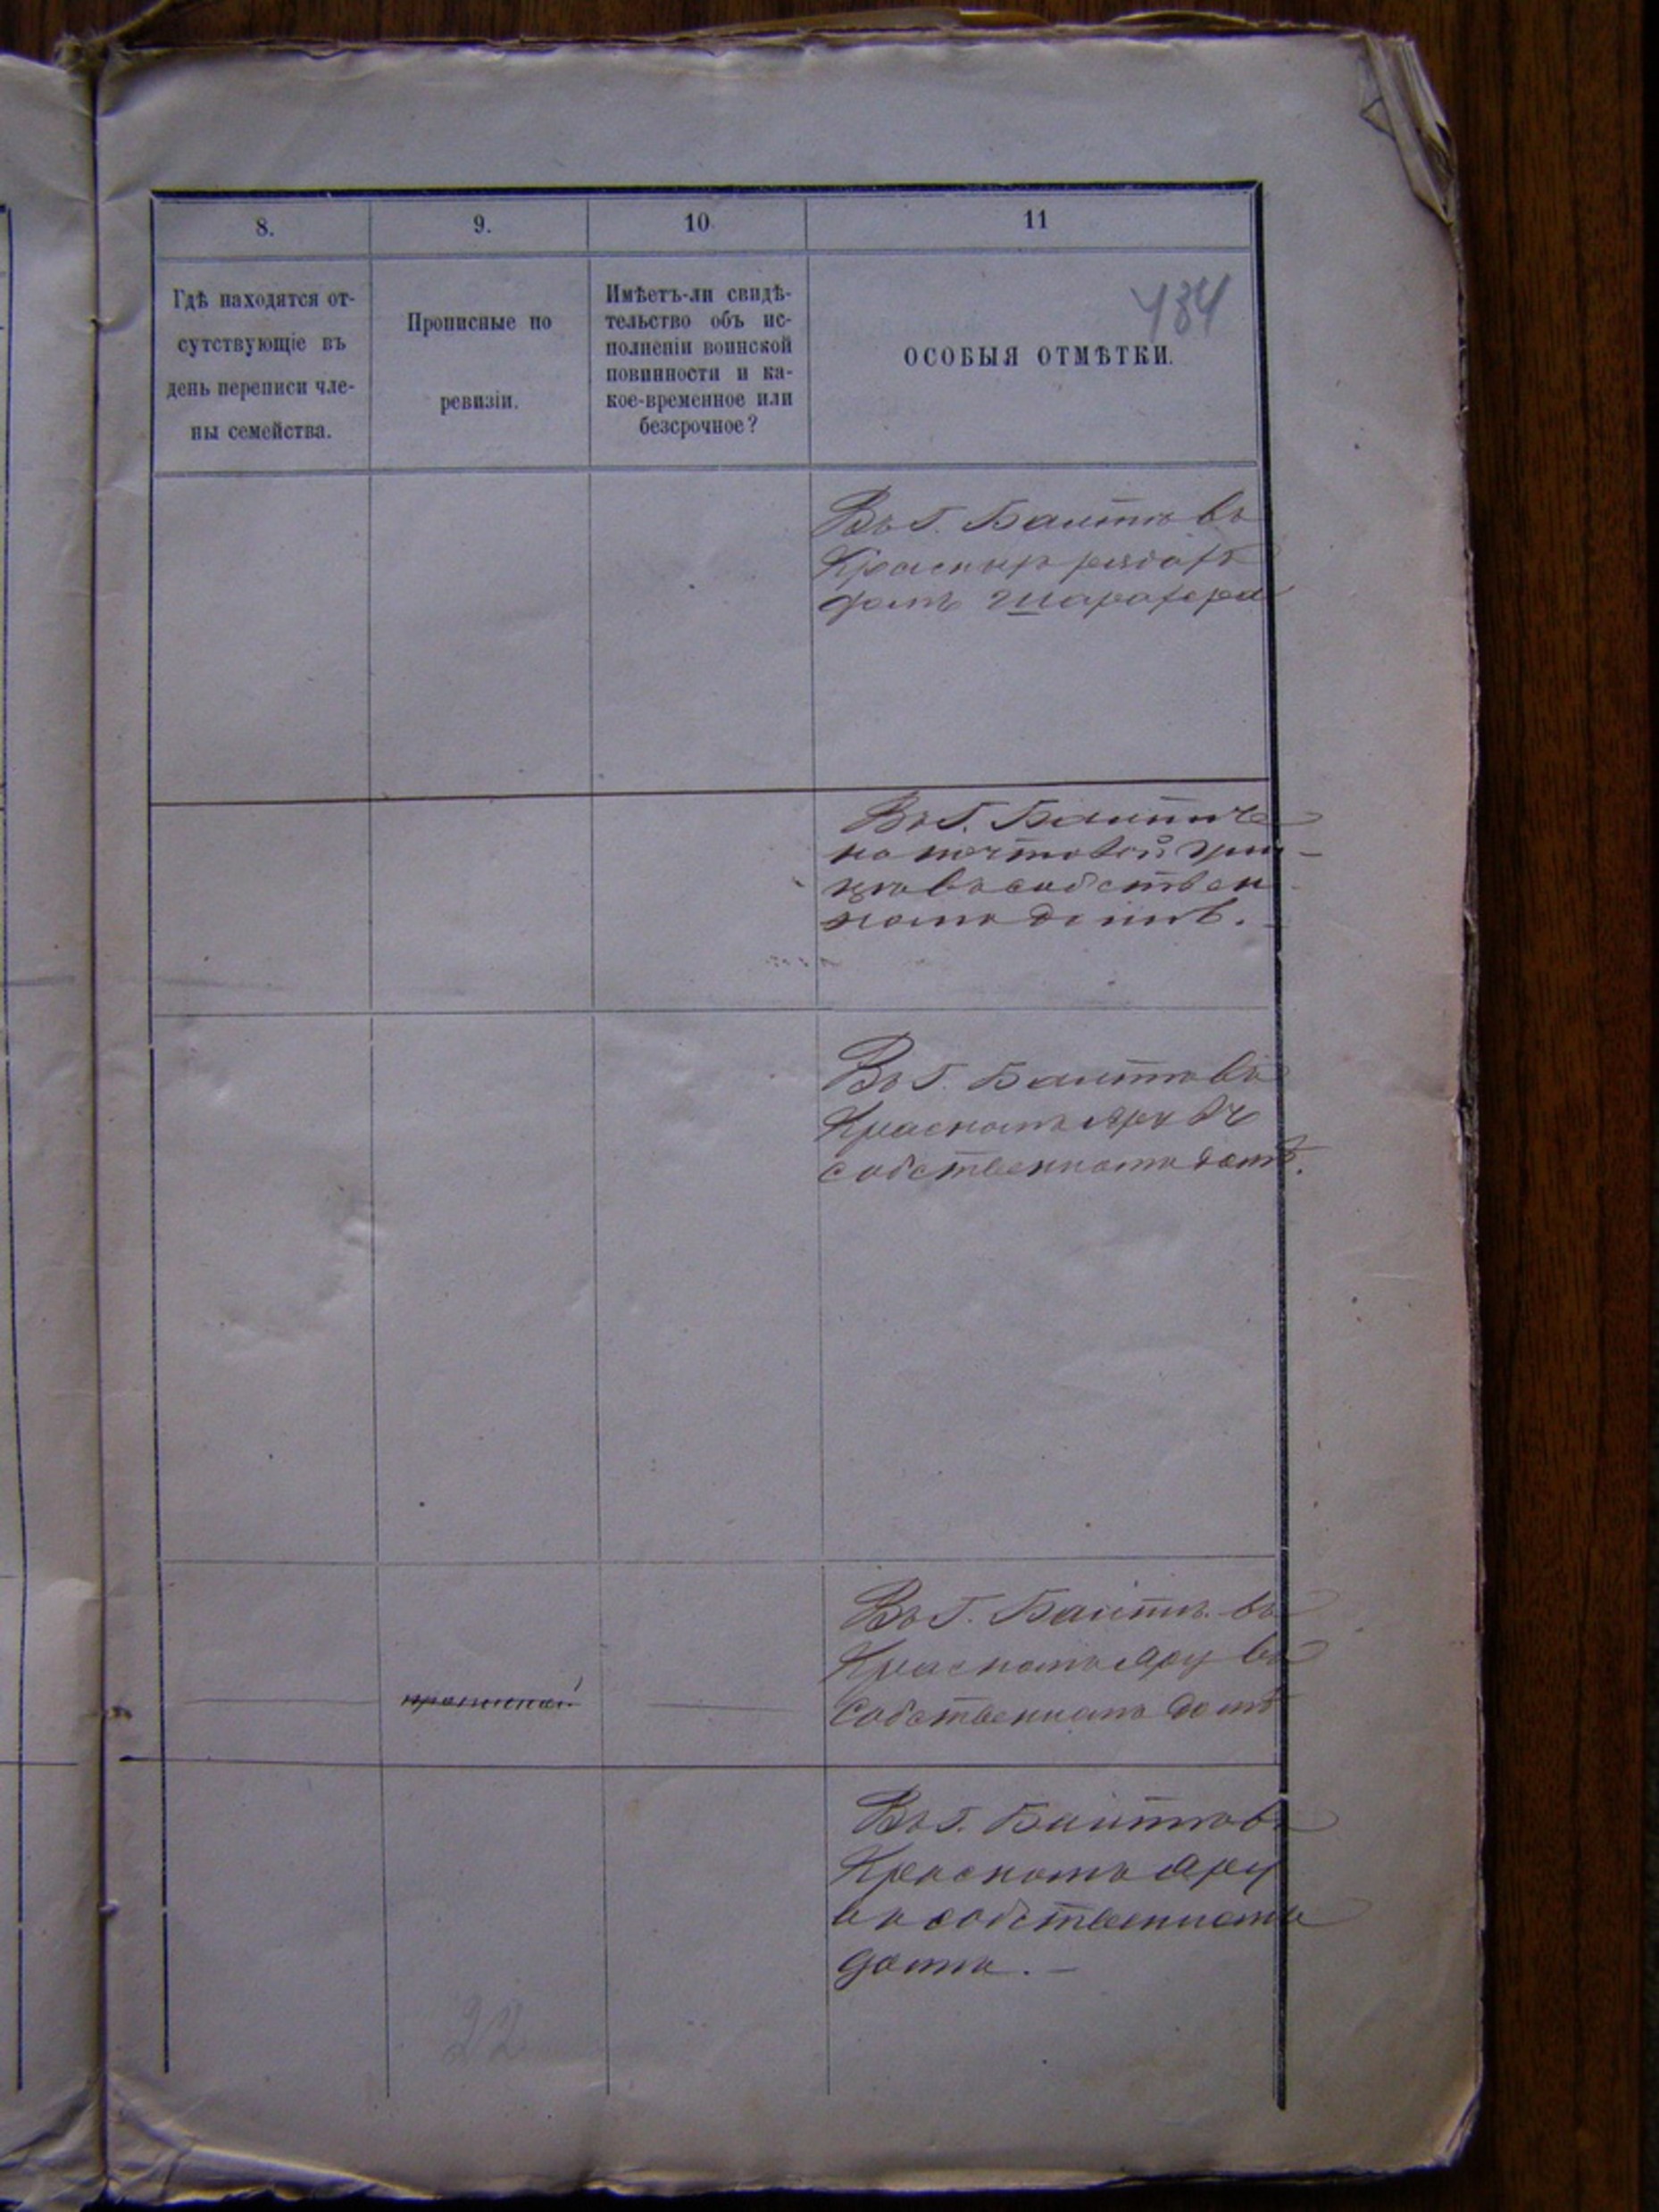 8.
9.
10
11
Гдѣ находятся от-
сутствующіе въ
день переписи чле-
ны семейства.
Прописные по
ревизіи.
Имѣетъ-ли свидѣ-
тельство объ ис-
полненіи воинской
повинности и ка-
кое-временное или
безсрочное?
484
ОСОБЫЯ ОТМѢТКИ.
Въ Г. Балтѣ въ
домѣ
Въ Г. Балтѣ
на почтовой ули-
цѣ въ собствен
номъ домѣ.
Въ Г. Балтѣ въ
Красномъ Яру въ
собственномъ домѣ.
Въ Г. Балтѣ въ
Красномъ Яру въ
собственномъ домѣ
Въ Г. Балтѣ въ
Красномъ Яру
въ собственномъ
домѣ. –
22